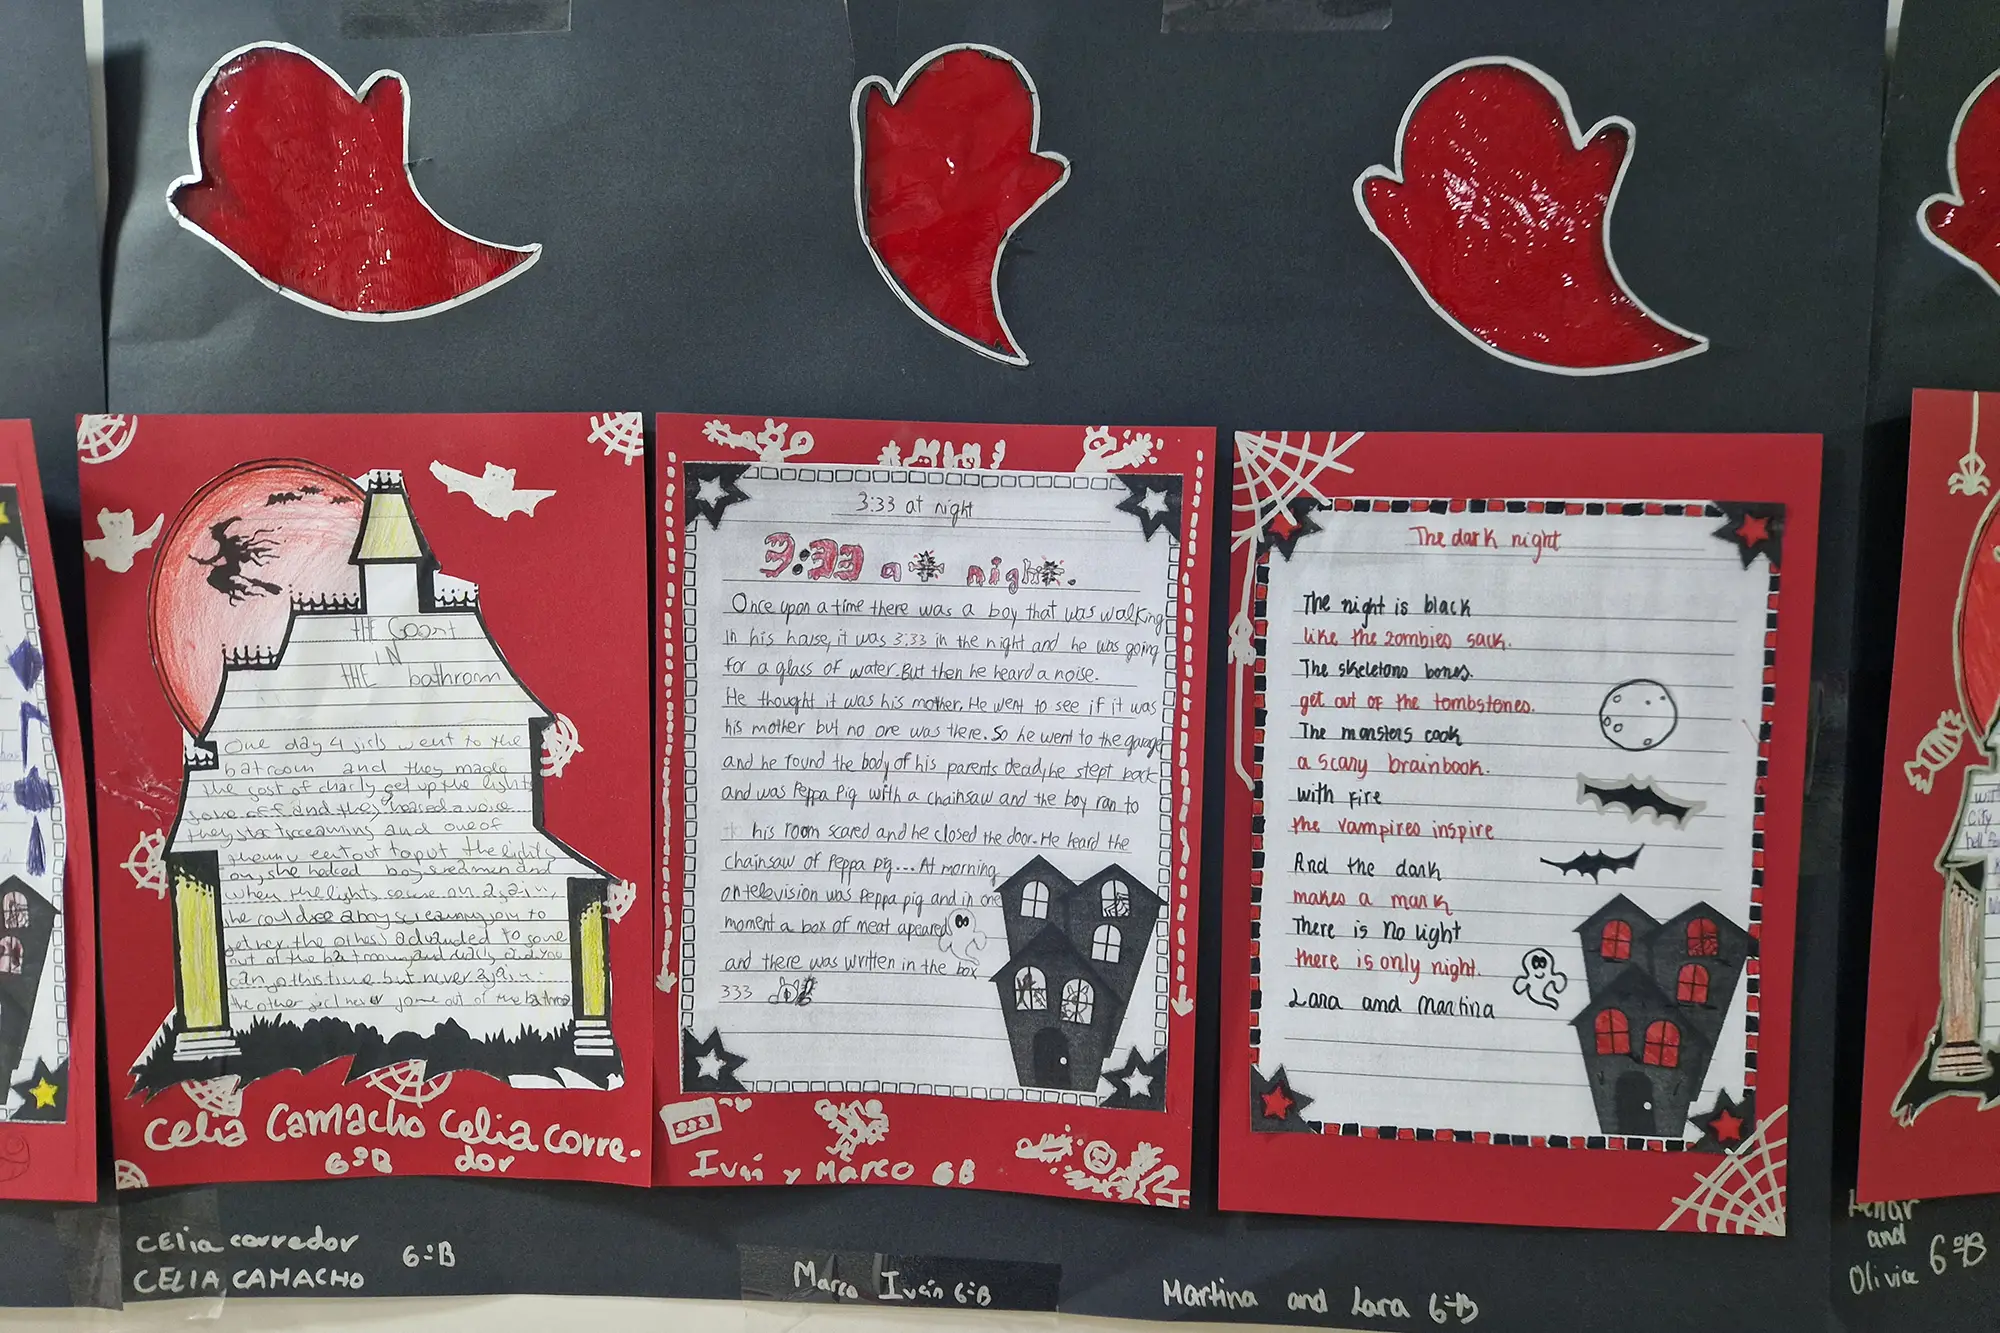 THE Goost
IN
THE bathroom
One day 4 girls went to the
batroom and they made
the gost of charly get up the lights
gone off and they heased a voise
they start screaming and one of
them cert out to put the lights
on, she heded boy sredmen and
when the lights come on again,
he could see a boy screaming
get her the others
out of the batroom and
can go this time but never again
the other girl never gone out of the bathroo
Celia Camacho Celia corre-
6ºB dor
CElia corredor 6ºB
CELIA CAMACHO
3:33 at night
3:33 at night.
Once upon a time there was a boy that was walking
in his house, it was 3:33 in the night and he was going
for a glass of water. But then he heard a noise.
He thought it was his mother. He went to see if it was
his mother but no one was there. So he went to the garage
and he found the body of his parents dead, he stept back
and was Peppa Pig with a chainsaw and the boy ran to
his room scared and he closed the door. He heard the
chainsaw of Peppa pig... At morning
on television was Peppa pig and in one
moment a box of meat apeared
and there was written in the box
333
333
Iván y Marco 6B
Marco Iván 6ºB
The dark night
The night is black
like the zombies sack.
The skeletons bones.
get out of the tombstones.
The monsters cook
a scary brainbook.
with fire
the vampires inspire
And the dark
makes a mark
There is no light
there is only night.
Lara and Martina
Martina and Lara 6ºB
and
Olivia 6ºB